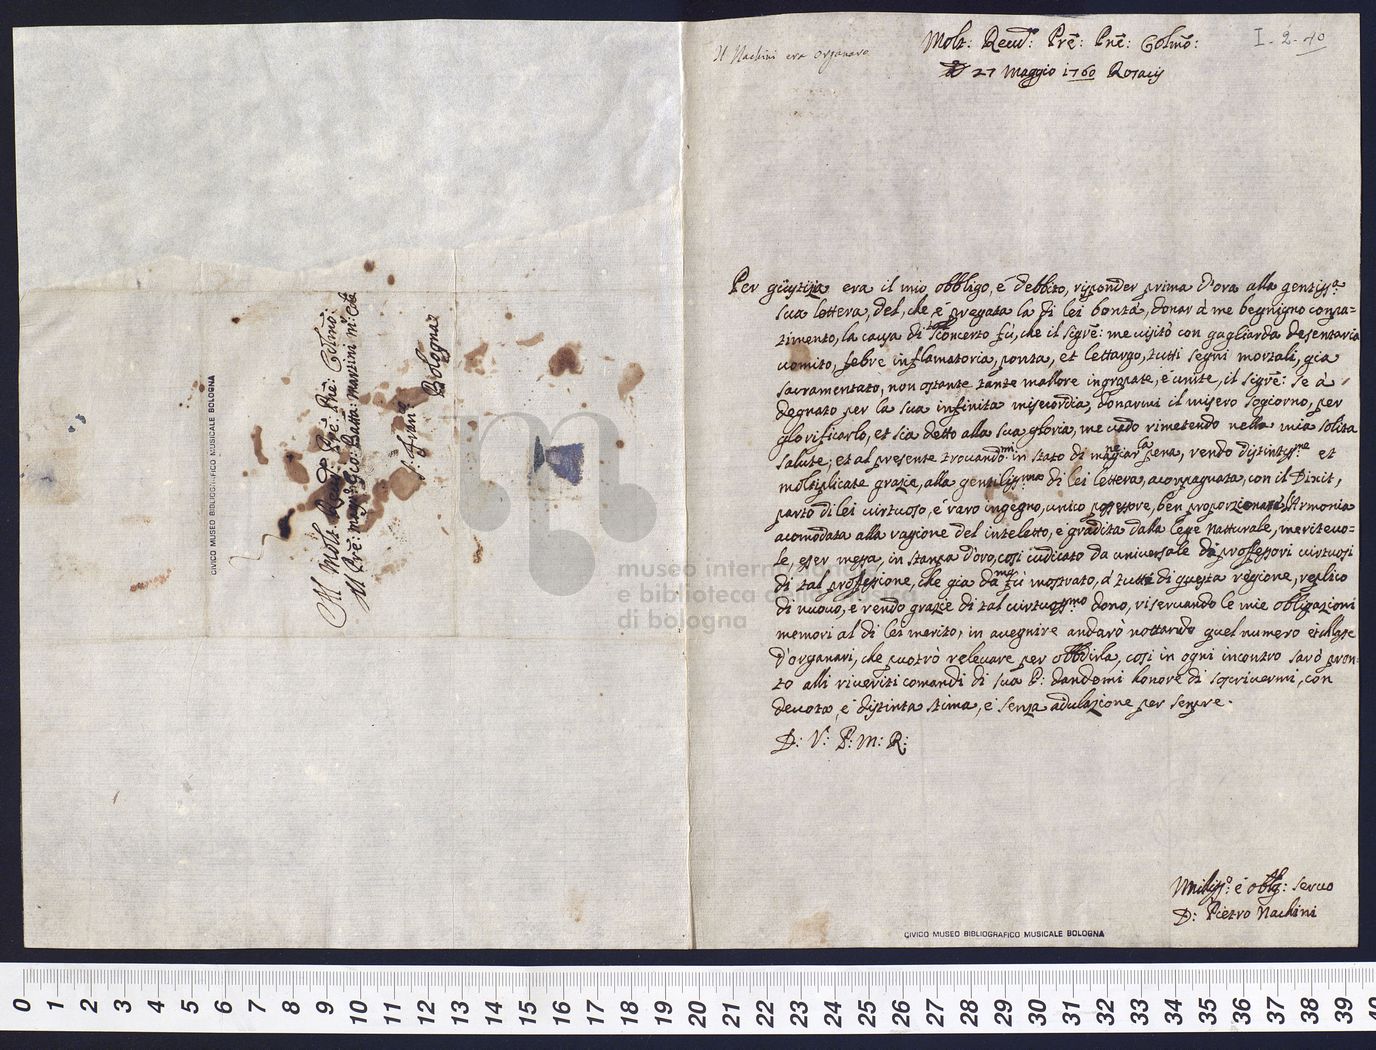 Al Molt: Revdo: Pre: Pre: Colmo:
Il Pre: Gio: Batta: Martini
S: Franco
Bologna
CIVICO MUSEO BIBLIOGRAFICO MUSICALE BOLOGNA
Il Nachini era organaro
I-2-40
Molt: Revd: Prē: Prē: Colmo:
27 Maggio 1760
Per giustizia era il mio obbligo, é debbito, risponder prima d'ora alla gentiss:a
sua lettera, del, che é pregata la di lei bontà, donar à me begnigno compa-
timento, la causa di tal sconcerto fù, che il Sigre: me visitò con gagliarda desentaria
vomito, febre inflamatoria, ponta, et lettargo, tutti segni mortali, già
sacramentato, non ostante tante mallore ingropate, é unite, il sigre: se à
degnato per la sua infinita misericordia, donarmi il misero sogiorno, per
glorificarlo, et sia detto alla sua gloria, me vado rimetendo nella mia solita
salute, et al presente trovandomi in stato di la pena, rendo distintissme et
moltiplicate grazie, alla gentilissma di lei lettera, acompagnata, con il Dixit,
parto di lei virtuoso, é raro ingegno, unico possessore, ben proporzionare l'Armonia
acomodata alla ragione del intelletto, é gradita dalla lege natturale, meritevo-
le, esser messa, in stanza d'oro, cosi iudicato da universale di proffessori virtuosi
di tal proffessione, che gia da me fù mostrato, à tutti di questa regione, replico
di nuovo, é rendo grazie di tal virtuossmo dono, riservando le mie obligazioni
memori al di lei merito, in avegnire andarò nottando quel numero et classe
d'organari, che puotrò relevare per obbdirla, cosi in ogni incontro sarò pron-
to alli riveriti comandi di sua P: dandomi honore di soscrivermi, con
devota, é distinta stima, é senza adulazione per sempre.
D: V: P: M: R:
Umiliss:o é obblg: servo
D: Pietro Nachini
CIVICO MUSEO BIBLIOGRAFICO MUSICALE BOLOGNA
museo internazionale
e biblioteca della musica
di bologna
0 1 2 3 4 5 6 7 8 9 10 11 12 13 14 15 16 17 18 19 20 21 22 23 24 25 26 27 28 29 30 31 32 33 34 35 36 37 38 39 40